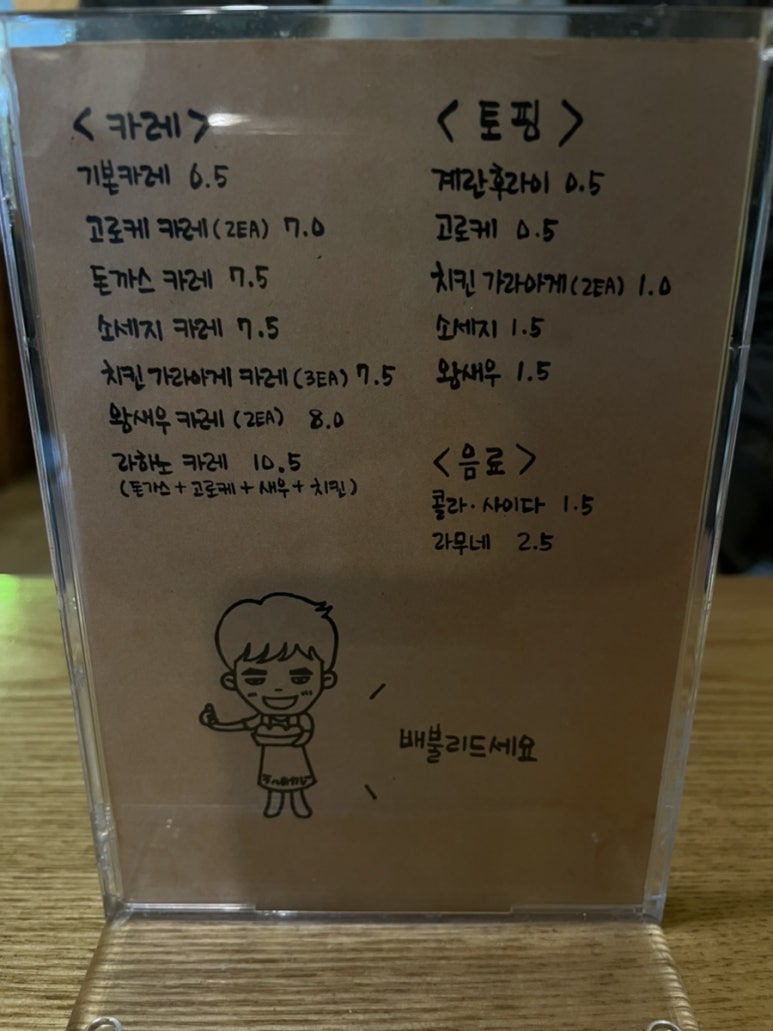 <카레>
기본카레 6.5
고로케 카레(2EA) 7.0
돈까스 카레 7.5
소세지 카레 7.5
치킨 가라아게 카레(3EA) 7.5
왕새우 카레 (2EA) 8.0
라하노 카레 10.5
(돈가스+고로케+새우+치킨)
<토핑>
계란후라이 0.5
고로케 0.5
치킨 가라아게(2EA) 1.0
소세지 1.5
왕새우 1.5
<음료>
콜라·사이다 1.5
라무네 2.5
배불리드세요